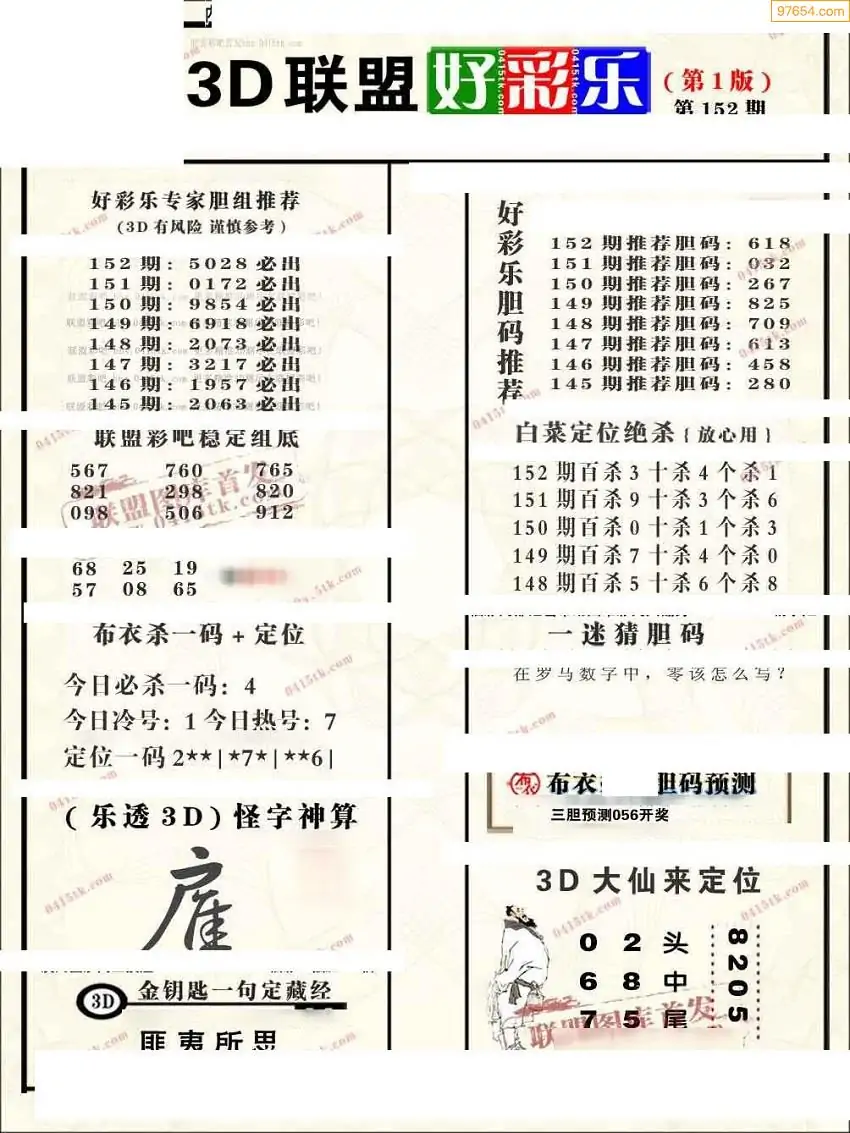 97654.com
3D联盟 好彩乐 (第1版)
第152期
好彩乐专家胆组推荐
(3D有风险 谨慎参考)
152期: 5028必出
151期: 0172必出
150期: 9854必出
149期: 6918必出
148期: 2073必出
147期: 3217必出
146期: 1957必出
145期: 2063必出
联盟彩吧稳定组底
567 760 765
821 298 820
098 506 912
68 25 19
57 08 65
布衣杀一码+定位
今日必杀一码: 4
今日冷号: 1 今日热号: 7
定位一码 2**|*7*|**6|
(乐透3D)怪字神算
3D 金钥匙一句定藏经
匪夷所思
好彩乐胆码推荐
152期推荐胆码: 618
151期推荐胆码: 032
150期推荐胆码: 267
149期推荐胆码: 825
148期推荐胆码: 709
147期推荐胆码: 613
146期推荐胆码: 458
145期推荐胆码: 280
白菜定位绝杀{放心用}
152期百杀3十杀4个杀1
151期百杀9十杀3个杀6
150期百杀0十杀1个杀3
149期百杀7十杀4个杀0
148期百杀5十杀6个杀8
一迷猜胆码
在罗马数字中，零该怎么写?
布衣 胆码预测
三胆预测056开奖
3D大仙来定位
0 2 头
6 8 中
7 5 尾
8205
联盟图库首发
0415tk.com